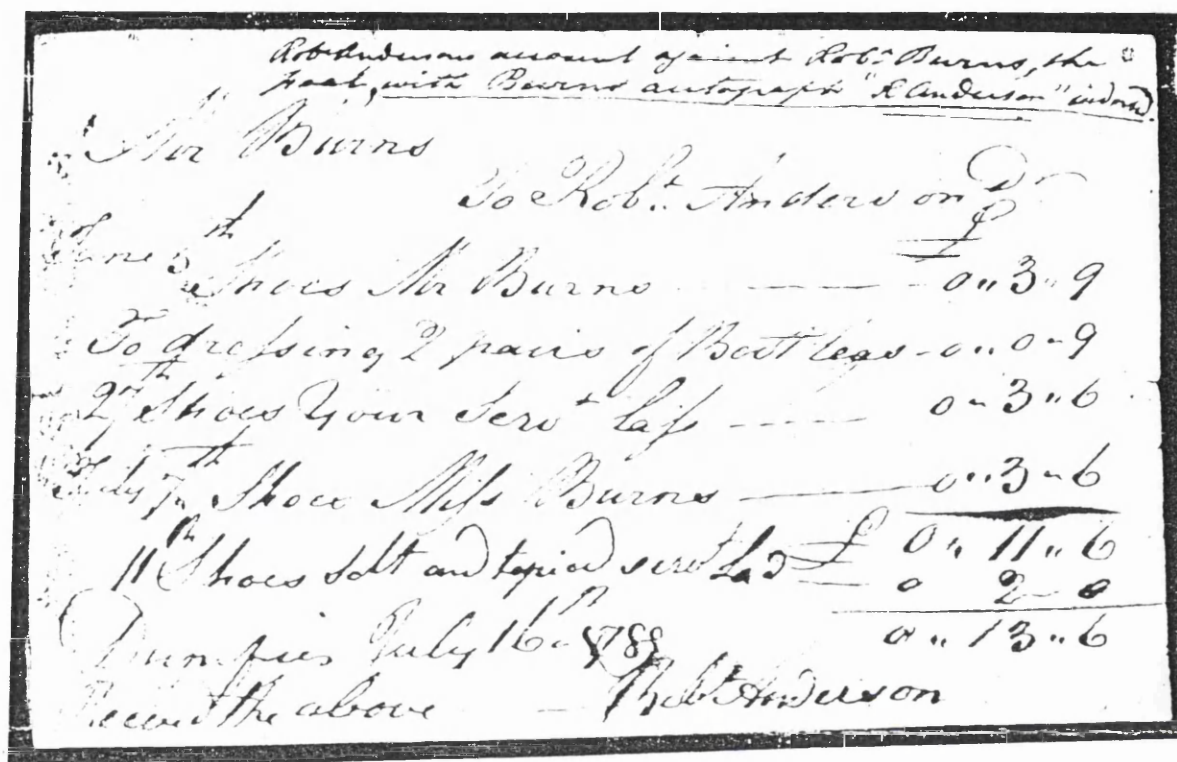 Robt Andersons account against Robt Burns, the
poet, with Burns autograph "R Anderson" indorsd.
Mr Burns
To Robt. Anderson Dr
£
June 3th Shoes Mr Burns 0 " 3 " 9
To dressing 2 pairs of Boot legs - 0 " 0 " 9
27th Shoes Your Servt Lass 0 " 3 " 6
July 7th Shoes Miss Burns 0 " 3 " 6
£ 0 " 11 " 6
11th Shoes solt and servt Lad 0 2 0
0 " 13 " 6
Dumfries July 16th
Received the above Robt Anderson